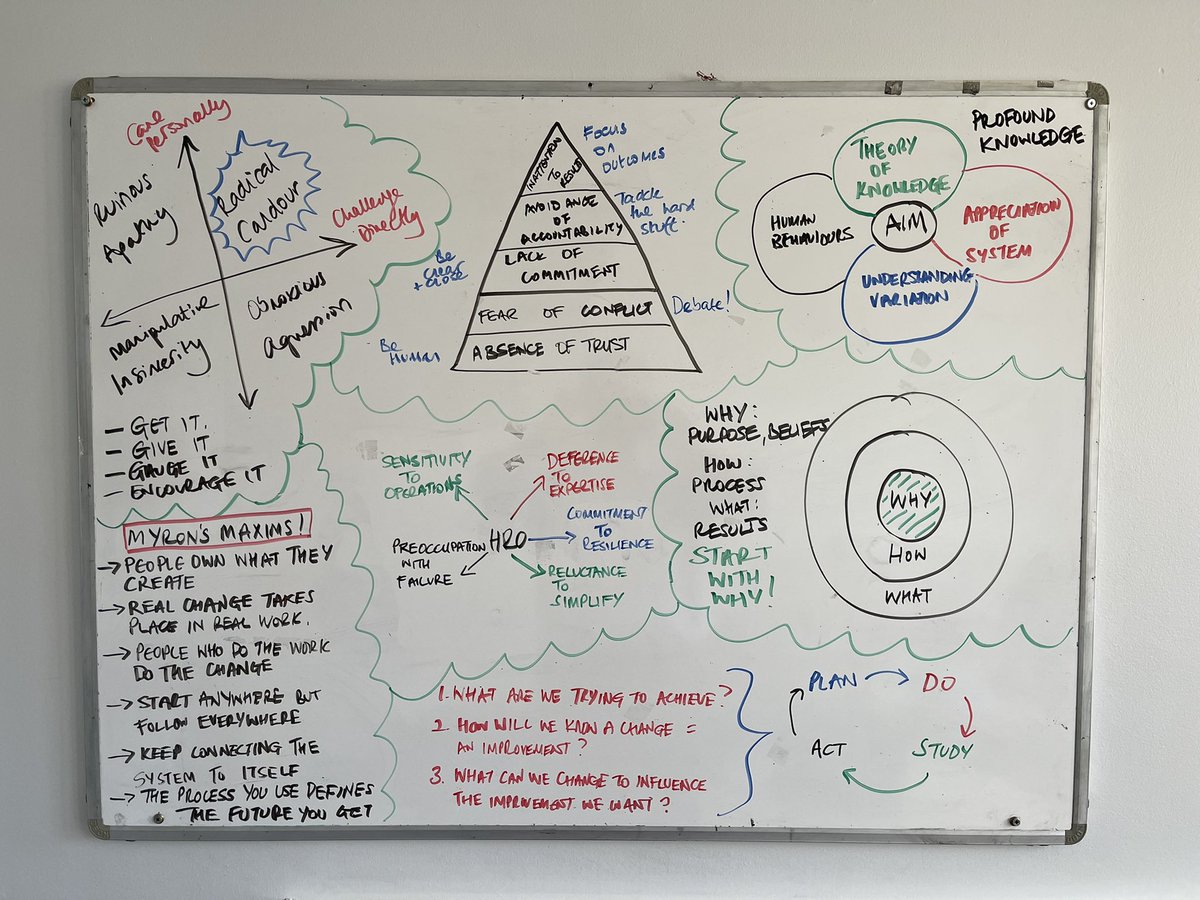 Care
Personally
Radical
Candour
Ruinous
Apathy
Challenge
Directly
Manipulative
Insincerity
Obnoxious
Agression
— GET IT.
— GIVE IT
— GAUGE IT
— ENCOURAGE IT
INATTENTION
TO
RESULTS
AVOIDANCE
OF
ACCOUNTABILITY
LACK OF
COMMITMENT
FEAR OF CONFLICT
ABSENCE OF TRUST
Focus
on
outcomes
Tackle
the hard
stuff.
Be
clear
+ close
Debate!
Be
Human
PROFOUND
KNOWLEDGE
THEORY
OF
KNOWLEDGE
HUMAN
BEHAVIOURS
AIM
APPRECIATION
OF
SYSTEM
UNDERSTANDING
VARIATION
MYRON'S MAXIMS!
→ PEOPLE OWN WHAT THEY
CREATE
→ REAL CHANGE TAKES
PLACE IN REAL WORK.
→ PEOPLE WHO DO THE WORK
DO THE CHANGE
→ START ANYWHERE BUT
FOLLOW EVERYWHERE
→ KEEP CONNECTING THE
SYSTEM TO ITSELF
→ THE PROCESS YOU USE DEFINES
THE FUTURE YOU GET
SENSITIVITY
TO
OPERATIONS
DEFERENCE
TO
EXPERTISE
HRO
COMMITMENT
TO
RESILIENCE
PREOCCUPATION
WITH
FAILURE
RELUCTANCE
TO
SIMPLIFY
WHY:
PURPOSE, BELIEFS
HOW:
PROCESS
WHAT:
RESULTS
START
WITH
WHY!
WHY
HOW
WHAT
1. WHAT ARE WE TRYING TO ACHIEVE?
2. HOW WILL WE KNOW A CHANGE =
AN IMPROVEMENT?
3. WHAT CAN WE CHANGE TO INFLUENCE
THE IMPROVEMENT WE WANT?
PLAN
DO
ACT
STUDY